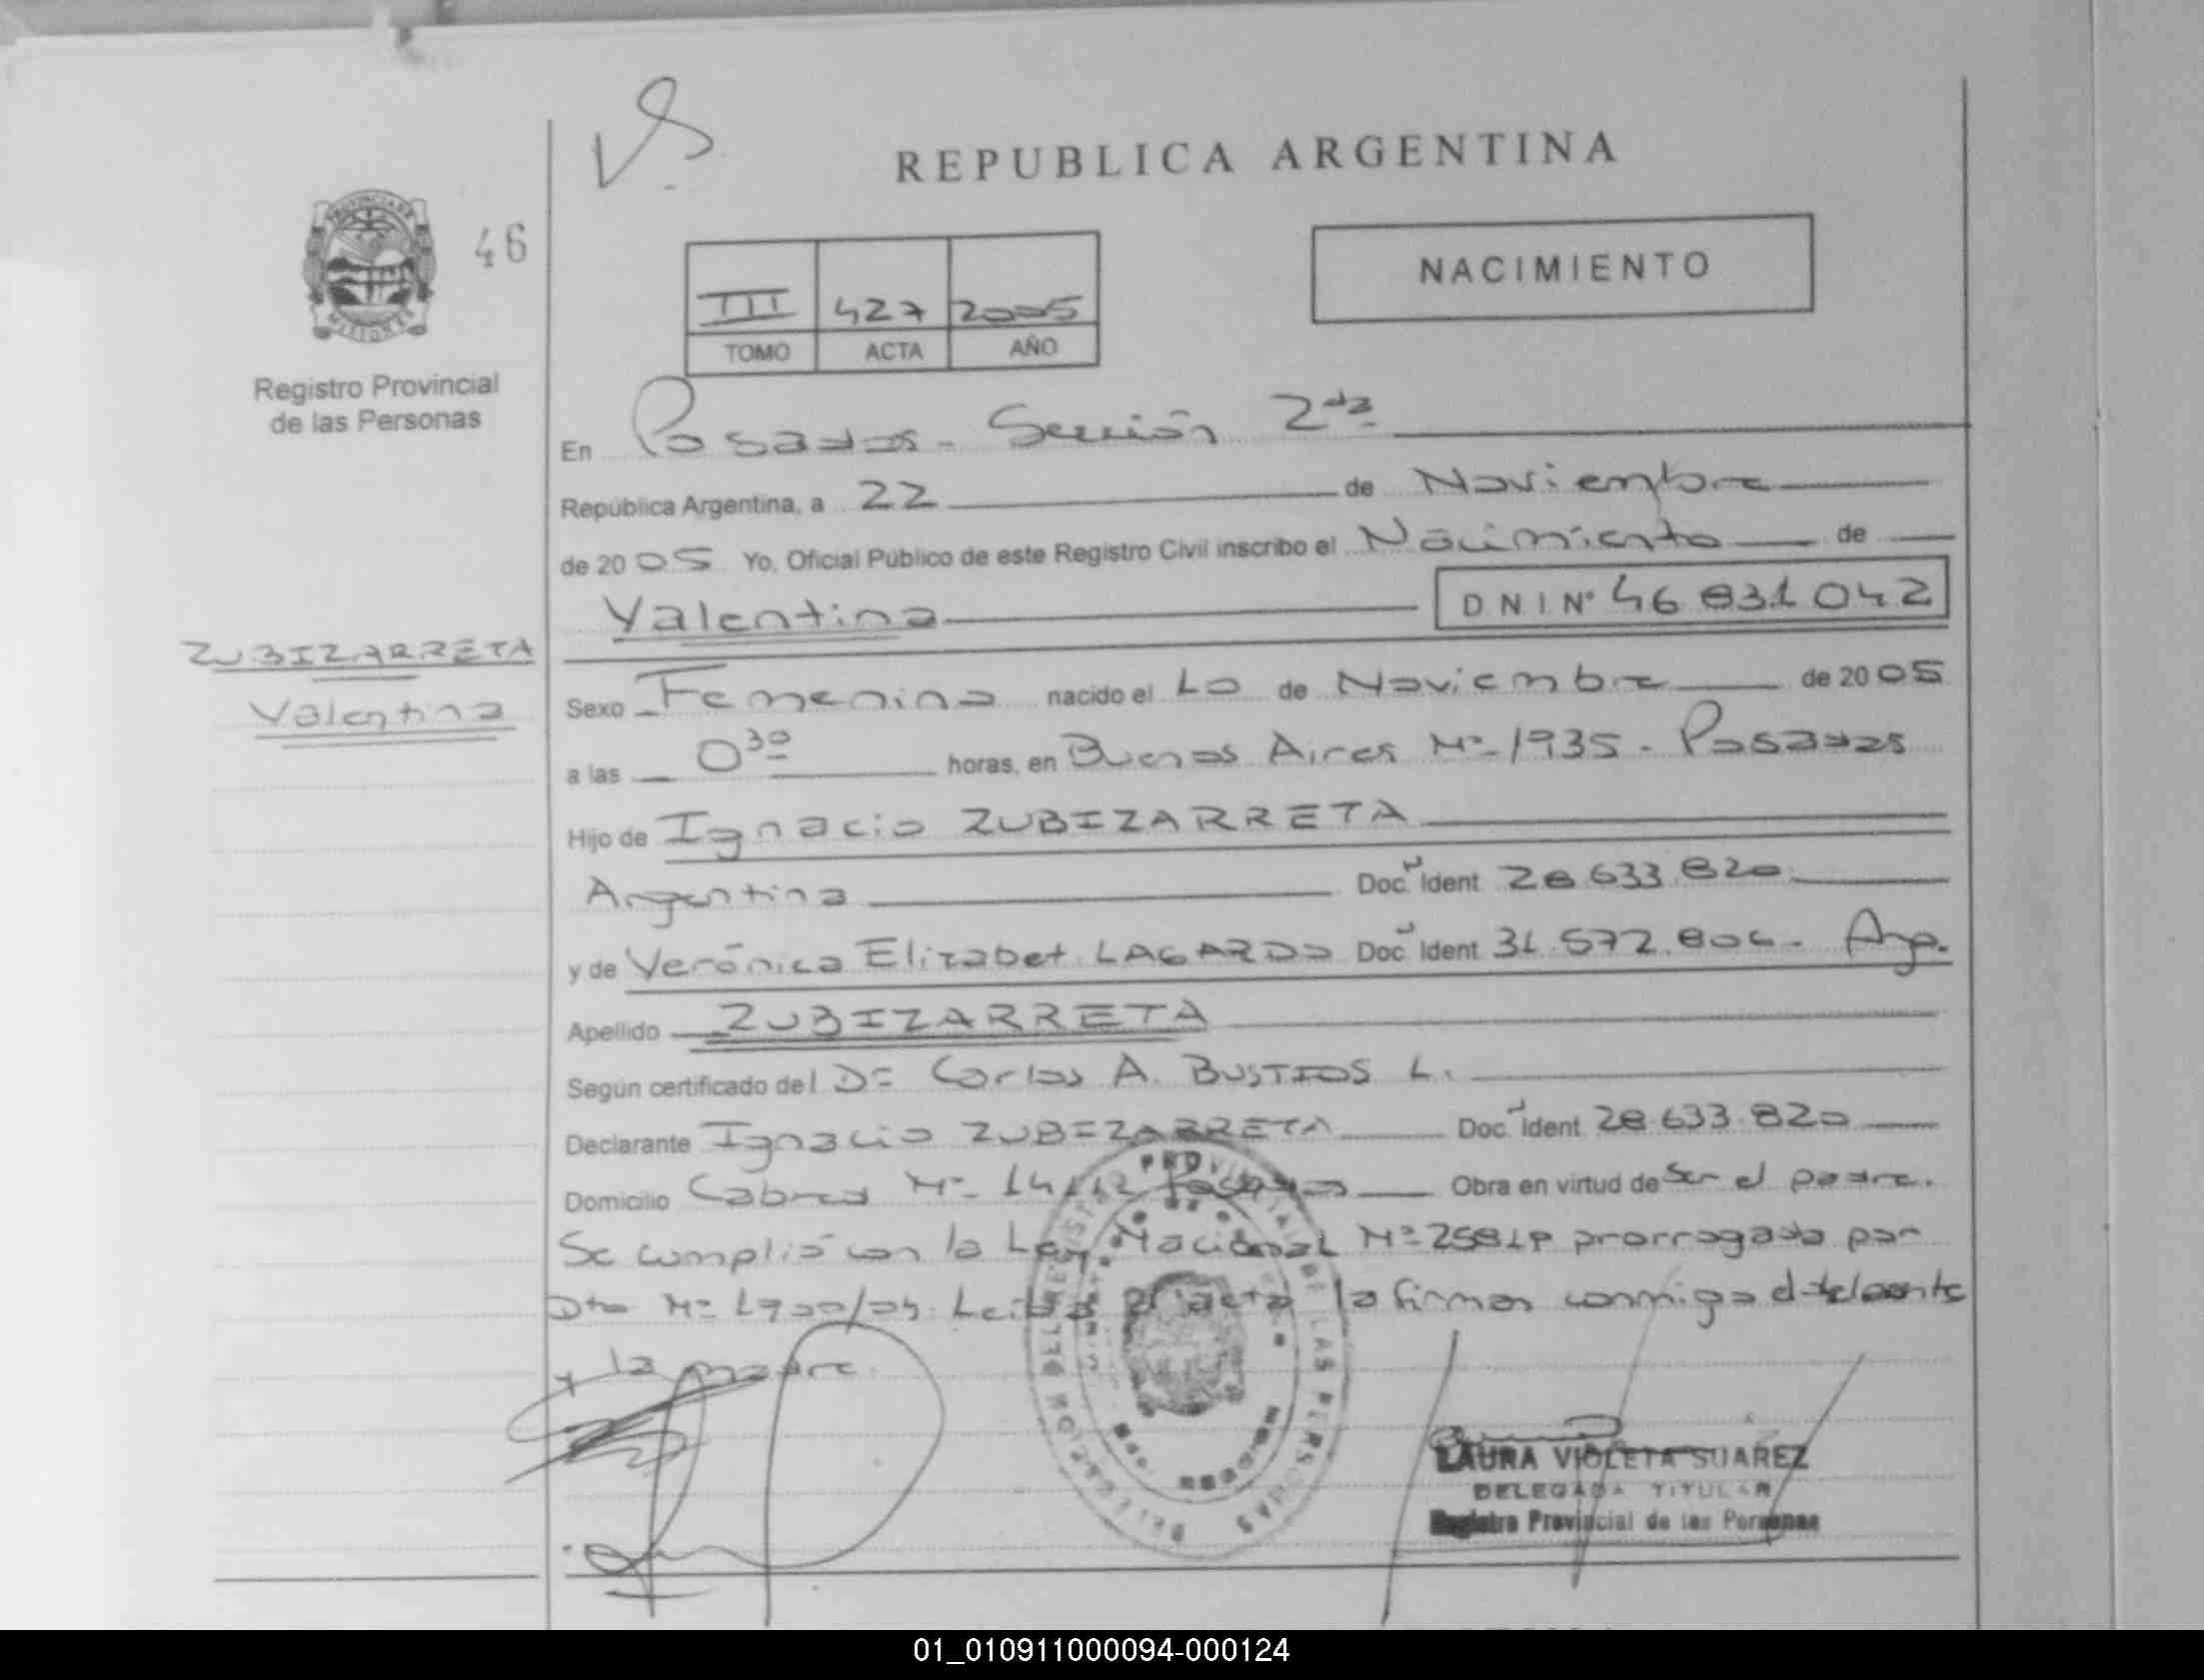 REPUBLICA ARGENTINA
PROVINCIA DE
MISIONES
46
Registro Provincial
de las Personas
NACIMIENTO
III 427 2005
TOMO ACTA AÑO
En Posadas - Sección 2da
República Argentina, a 22 de Noviembre
de 2005 Yo, Oficial Público de este Registro Civil inscribo el Nacimiento de
Valentina DNI Nº 46 831 042
ZUBIZARRETA
Valentina
Sexo Femenino nacido el 10 de Noviembre de 2005
a las 0 30 horas, en Buenos Aires Nº 1935 - Posadas
Hijo de Ignacio ZUBIZARRETA
Argentina Doc. Ident 28 633 820
y de Verónica Elizabet LAGARDO Doc Ident 31.572.806 - Arg.
Apellido ZUBIZARRETA
Según certificado del Dr Carlos A. BUSTIOS L.
Declarante Ignacio ZUBIZARRETA Doc. Ident 28.633.820
Domicilio Cabred Nº Posadas Obra en virtud de Ser el padre.
Se cumplió con la Ley Nacional Nº 25819 prorrogada por
Dto Nº 1700/04. Leída el acta la firman conmigo el
y la madre.
LAURA VIOLETA SUAREZ
DELEGADA TITULAR
Registro Provincial de las Personas
01_010911000094-000124